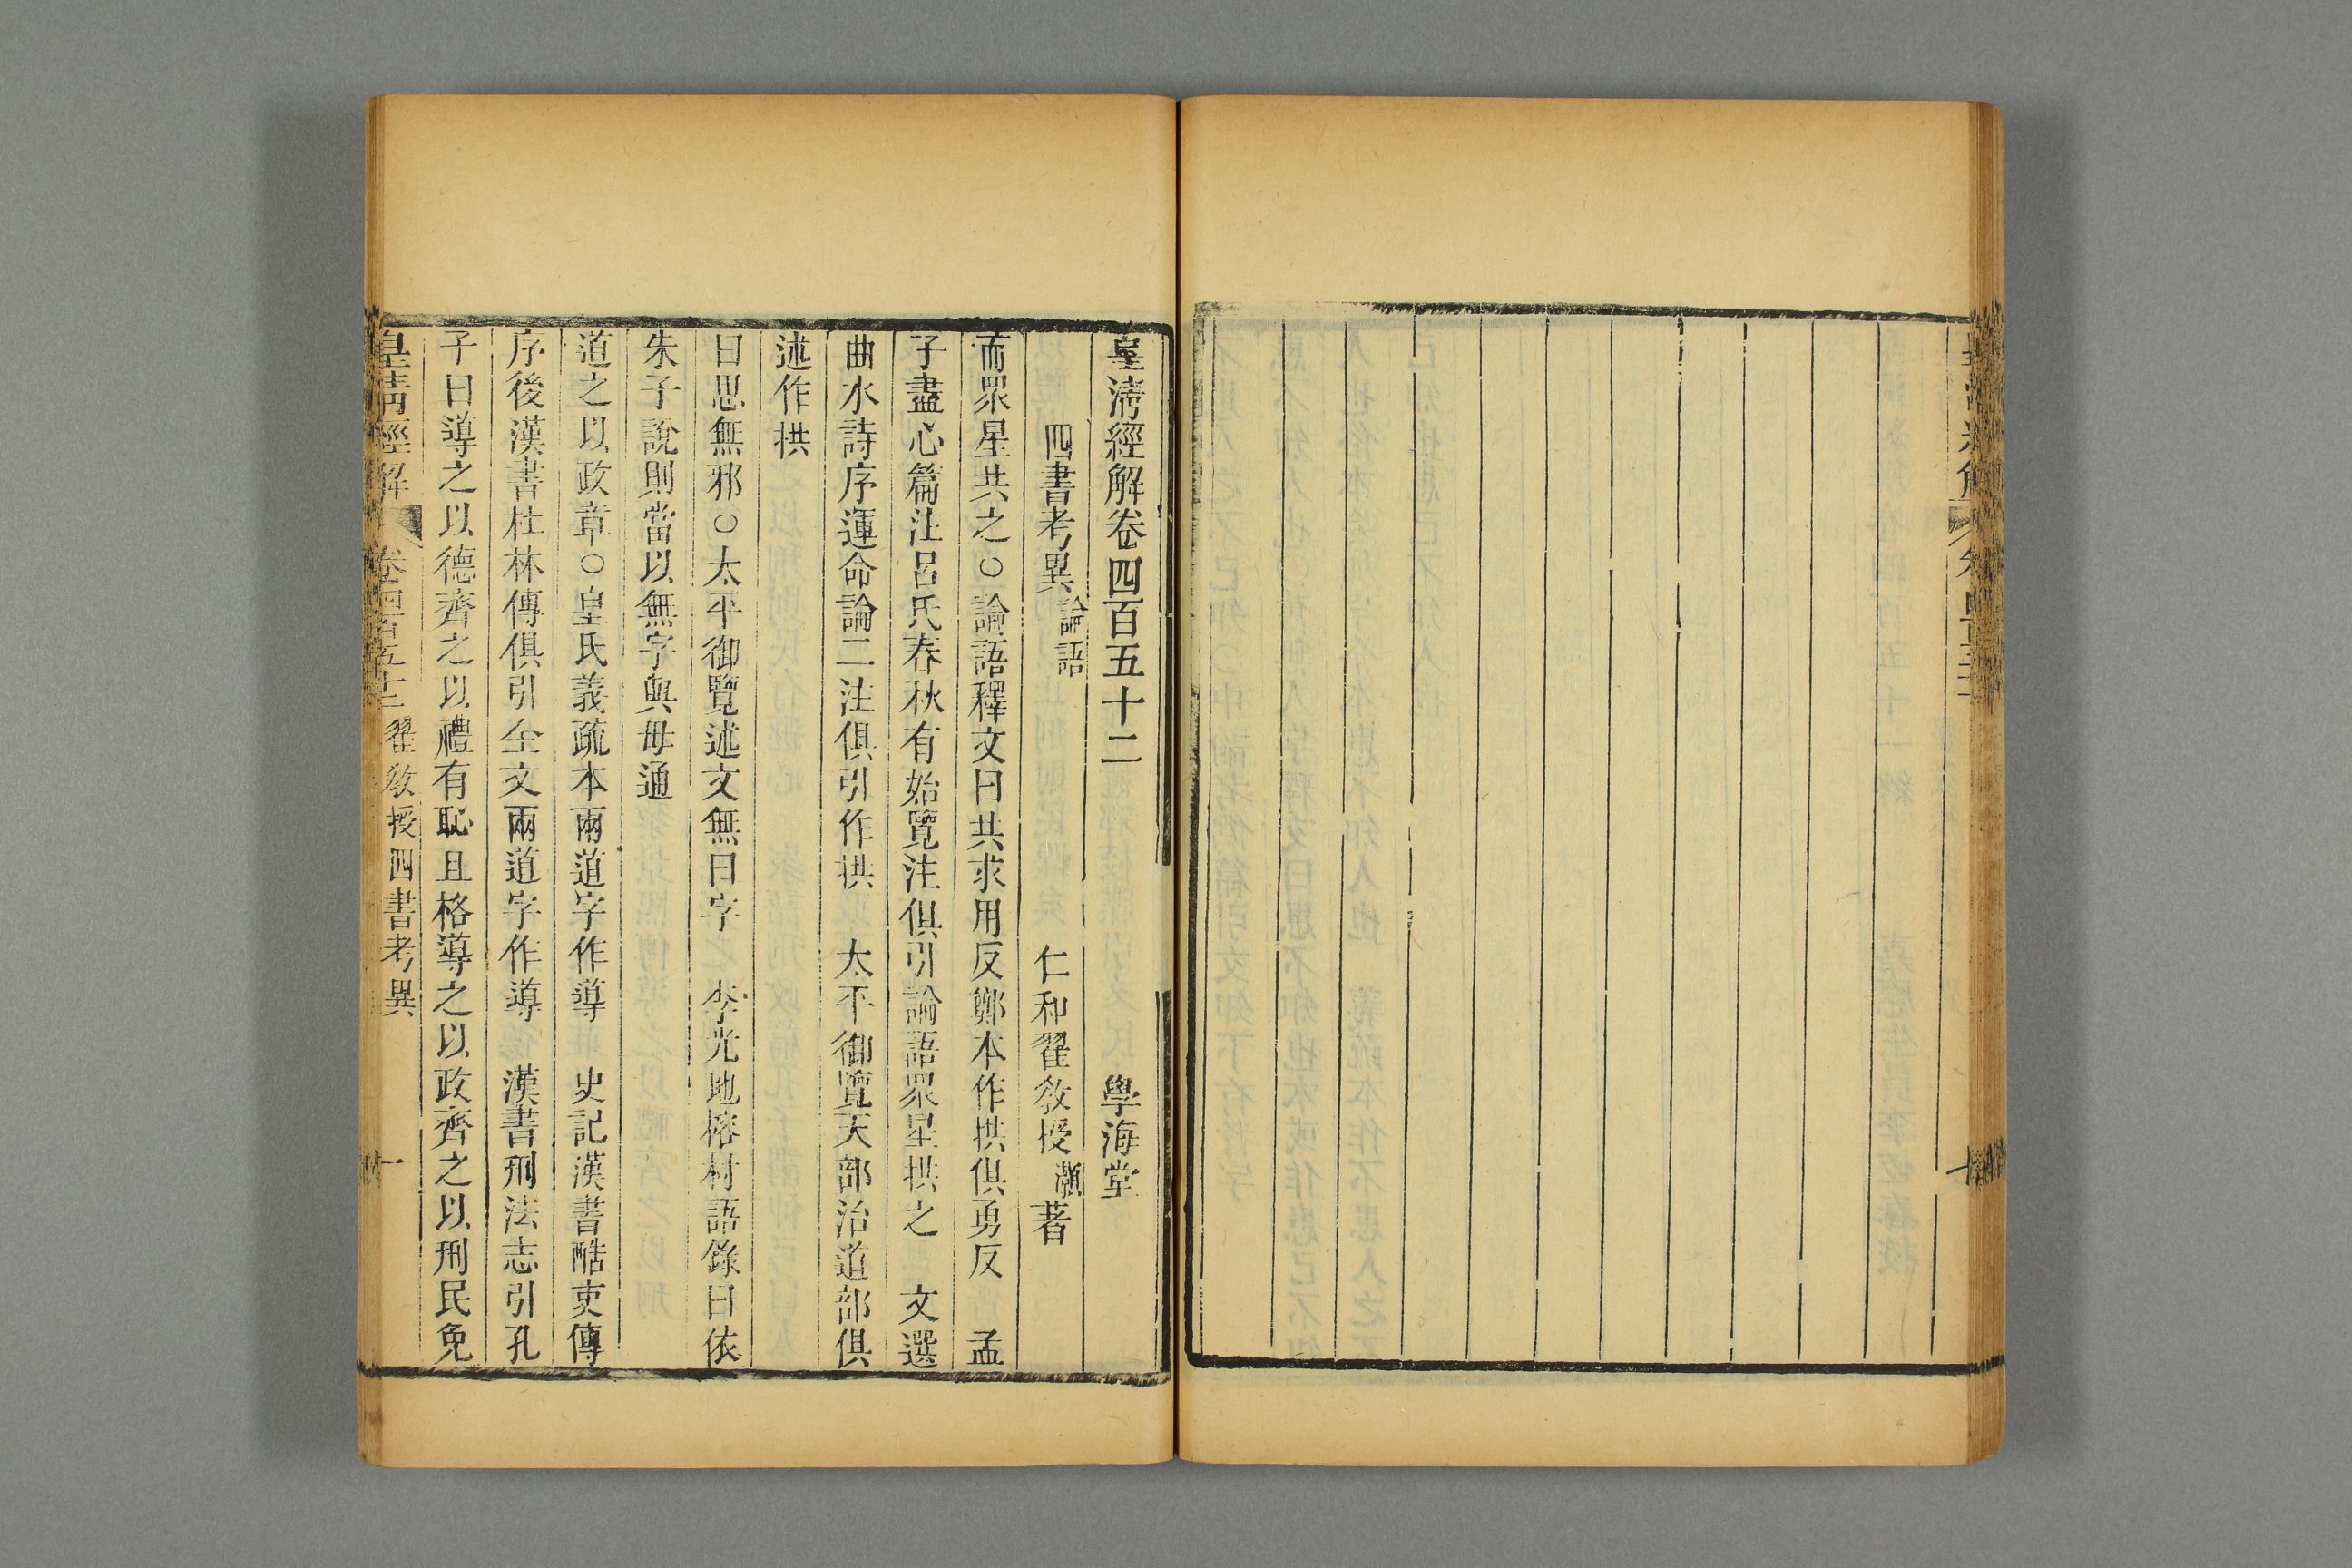 皇清經解卷四百五十二 學海堂
四書考異論語 仁和翟敎授灝著
而眾星共之○論語釋文曰共求用反鄭本作拱俱勇反 孟
子盡心篇注呂氏春秋有始覽注俱引論語眾星拱之 文選
曲水詩序運命論二注俱引作拱 太平御覽天部治道部俱
述作拱
曰思無邪○太平御覽述文無曰字 李光地榕村語錄曰依
朱子說則當以無字與毋通
道之以政章○皇氏義疏本兩道字作導 史記漢書酷吏傳
序後漢書杜林傳俱引全文兩道字作導 漢書刑法志引孔
子曰導之以德齊之以禮有恥且格導之以政齊之以刑民免
皇清經解 卷四百五十二 翟敎授四書考異 一